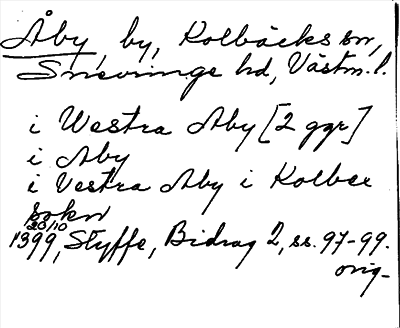 Åby, by, Kolbäcks sn,
Snevringe hd, Västm. l.
i Westra Aby [2 ggr]
i Aby
i Vestra Aby i Kolbex
sokn
20/10
1399, Styffe, Bidrag 2, ss. 97-99.
orig-